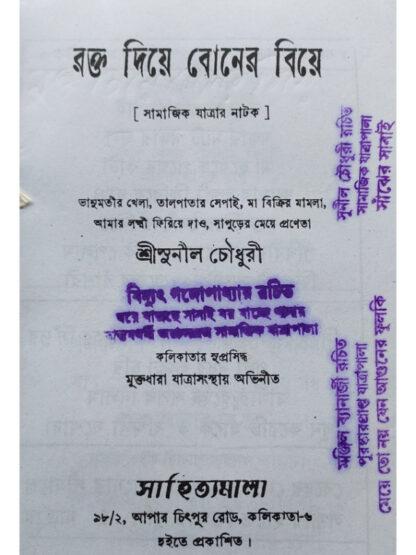 রক্ত দিয়ে বোনের বিয়ে
[ সামাজিক যাত্রার নাটক ]
ভানুমতীর খেলা, তালপাতার সেপাই, মা বিক্রির মামলা,
আমার লক্ষ্মী ফিরিয়ে দাও, সাপুড়ের মেয়ে প্রণেতা
শ্রীসুনীল চৌধুরী
বিদ্যুৎ গঙ্গোপাধ্যায় রচিত
সামাজিক যাত্রাপালা
কলিকাতার সুপ্রসিদ্ধ
মুক্তধারা যাত্রাসংস্থায় অভিনীত
সাহিত্যমালা
৯৮/২, আপার চিৎপুর রোড, কলিকাতা-৬
হইতে প্রকাশিত।
সুনীল চৌধুরী রচিত
সামাজিক যাত্রাপালা
সাঁঝের সানাই
ব্যানার্জী রচিত
পুরস্কারপ্রাপ্ত যাত্রাপালা
মেয়ে তো নয় যেন আগুনের ফুলকি